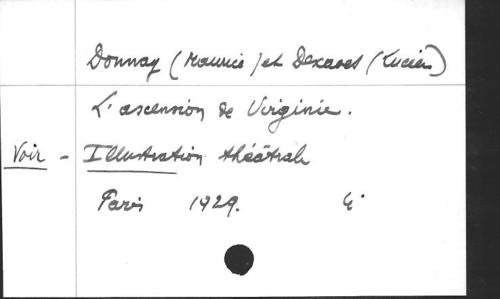 Donnay (Maurice) et Descaves (Lucien)
L'ascension de Virginie.
Voir - Illustration théâtrale
Paris 1929. 4°